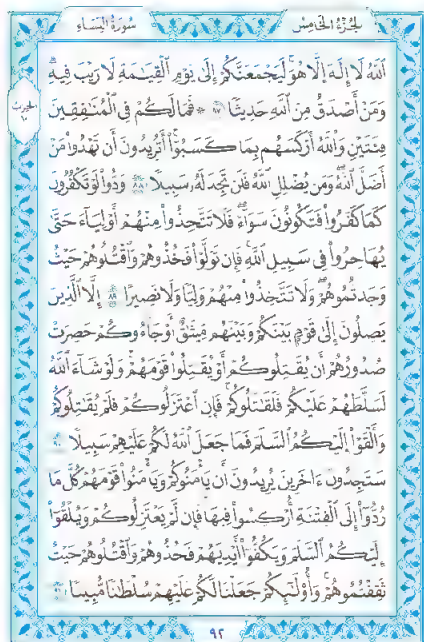 الجزء الخامس
سورة النساء
الله لا إله إلا هو ليجمعنكم إلى يوم القيمة لا ريب فيه
ومن أصدق من الله حديثا ٨٧ فما لكم في المنفقين
فئتين والله أركسهم بما كسبوا أتريدون أن تهدوا من
أضل الله ومن يضلل الله فلن تجد له سبيلا ٨٨ ودوا لو تكفرون
كما كفروا فتكونون سواء فلا تتخذوا منهم أولياء حتى
يهاجروا في سبيل الله فإن تولوا فخذوهم واقتلوهم حيث
وجدتموهم ولا تتخذوا منهم وليا ولا نصيرا ٨٩ إلا الذين
يصلون إلى قوم بينكم وبينهم ميثق أو جاءوكم حصرت
صدورهم أن يقتلوكم أو يقتلوا قومهم ولو شاء الله
لسلطهم عليكم فلقتلوكم فإن اعتزلوكم فلم يقتلوكم
وألقوا إليكم السلم فما جعل الله لكم عليهم سبيلا ٩٠
ستجدون ءاخرين يريدون أن يأمنوكم ويأمنوا قومهم كل ما
ردوا إلى الفتنة أركسوا فيها فإن لم يعتزلوكم ويلقوا
إليكم السلم ويكفوا أيديهم فخذوهم واقتلوهم حيث
ثقفتموهم وأولئكم جعلنا لكم عليهم سلطنا مبينا ٩١
٩٢